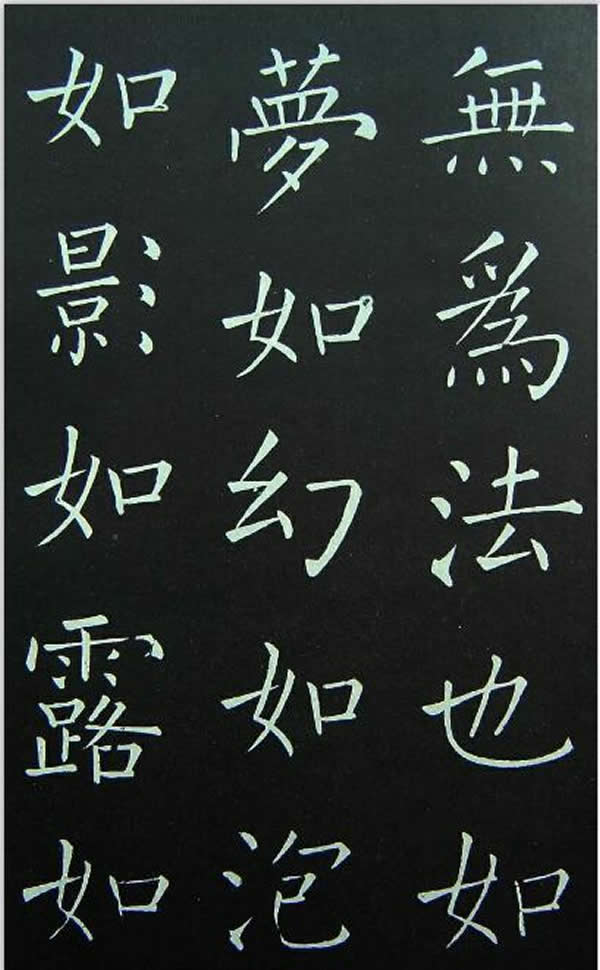 無為法也如
夢如幻如泡
如影如露如